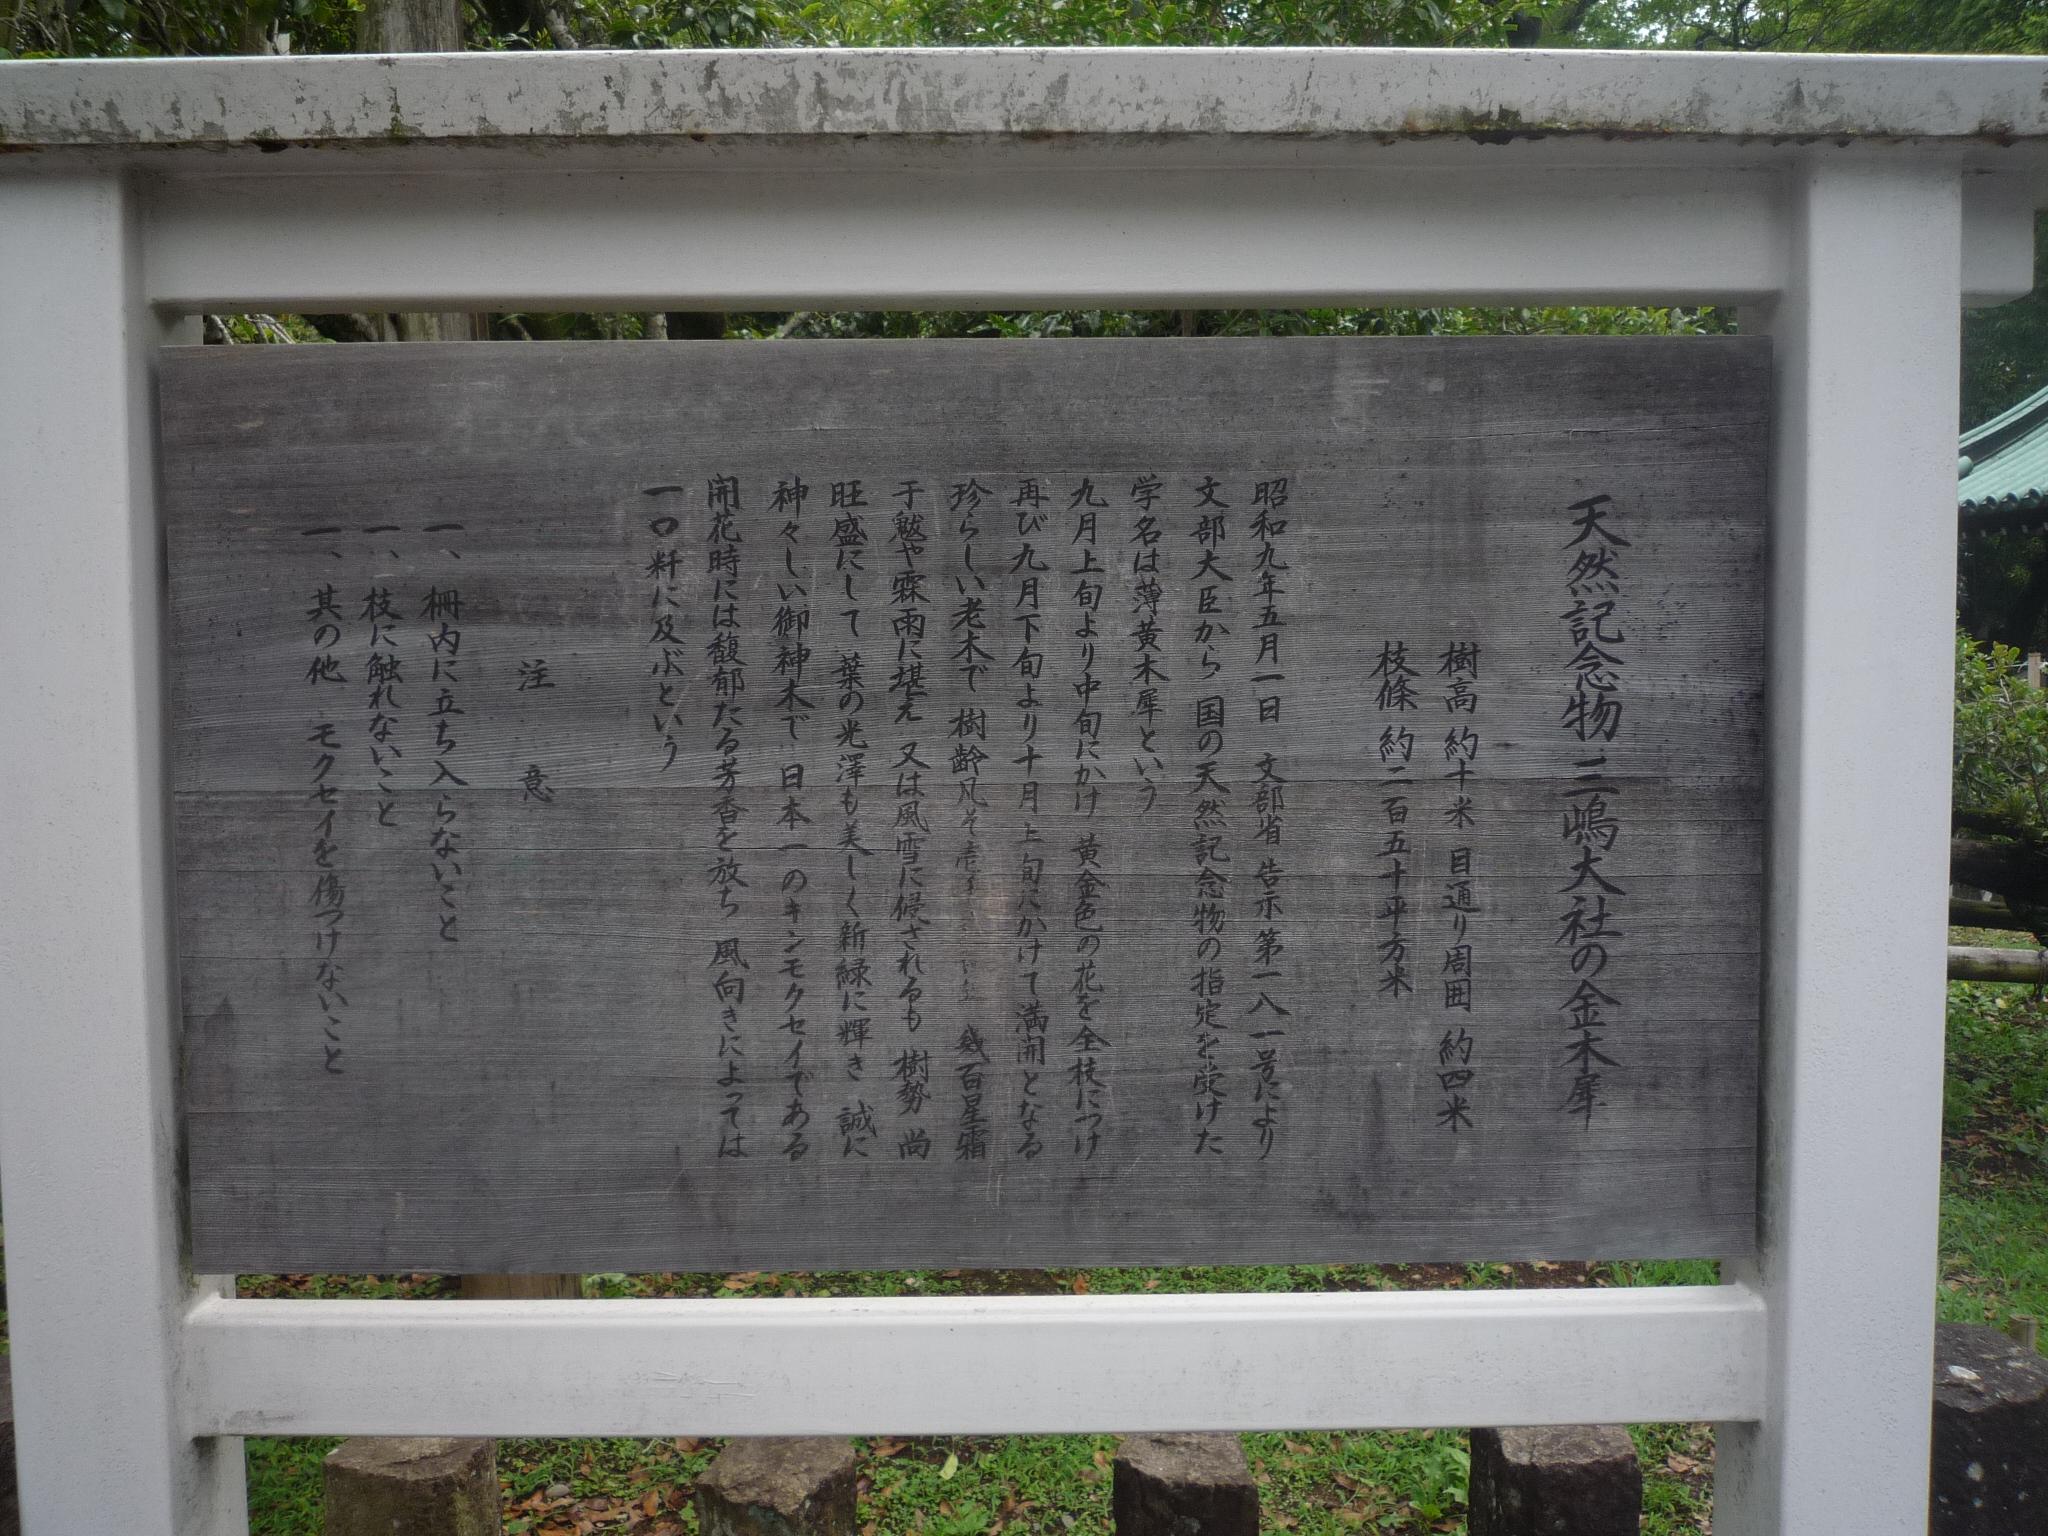 天然記念物三嶋大社の金木犀
樹高 約十米 目通り周囲 約四米
枝條 約二百五十平方米
昭和九年五月一日 文部省告示第一八一号により
文部大臣から 国の天然記念物の指定を受けた
学名は薄黄木犀という
九月上旬より中旬にかけ 黄金色の花を全枝につけ
再び九月下旬より十月上旬にかけて満開となる
珍らしい老木で 樹齢凡そ壱千 幾百星霜
干魃や霖雨に堪え 又は風雪に侵されるも 樹勢 尚
旺盛にして 葉の光澤も美しく新緑に輝き 誠に
神々しい御神木で 日本一のキンモクセイである
開花時には馥郁たる芳香を放ち 風向きによっては
一〇粁に及ぶという
注意
一、 柵内に立ち入らないこと
一、 枝に触れないこと
一、 其の他 モクセイを傷つけないこと